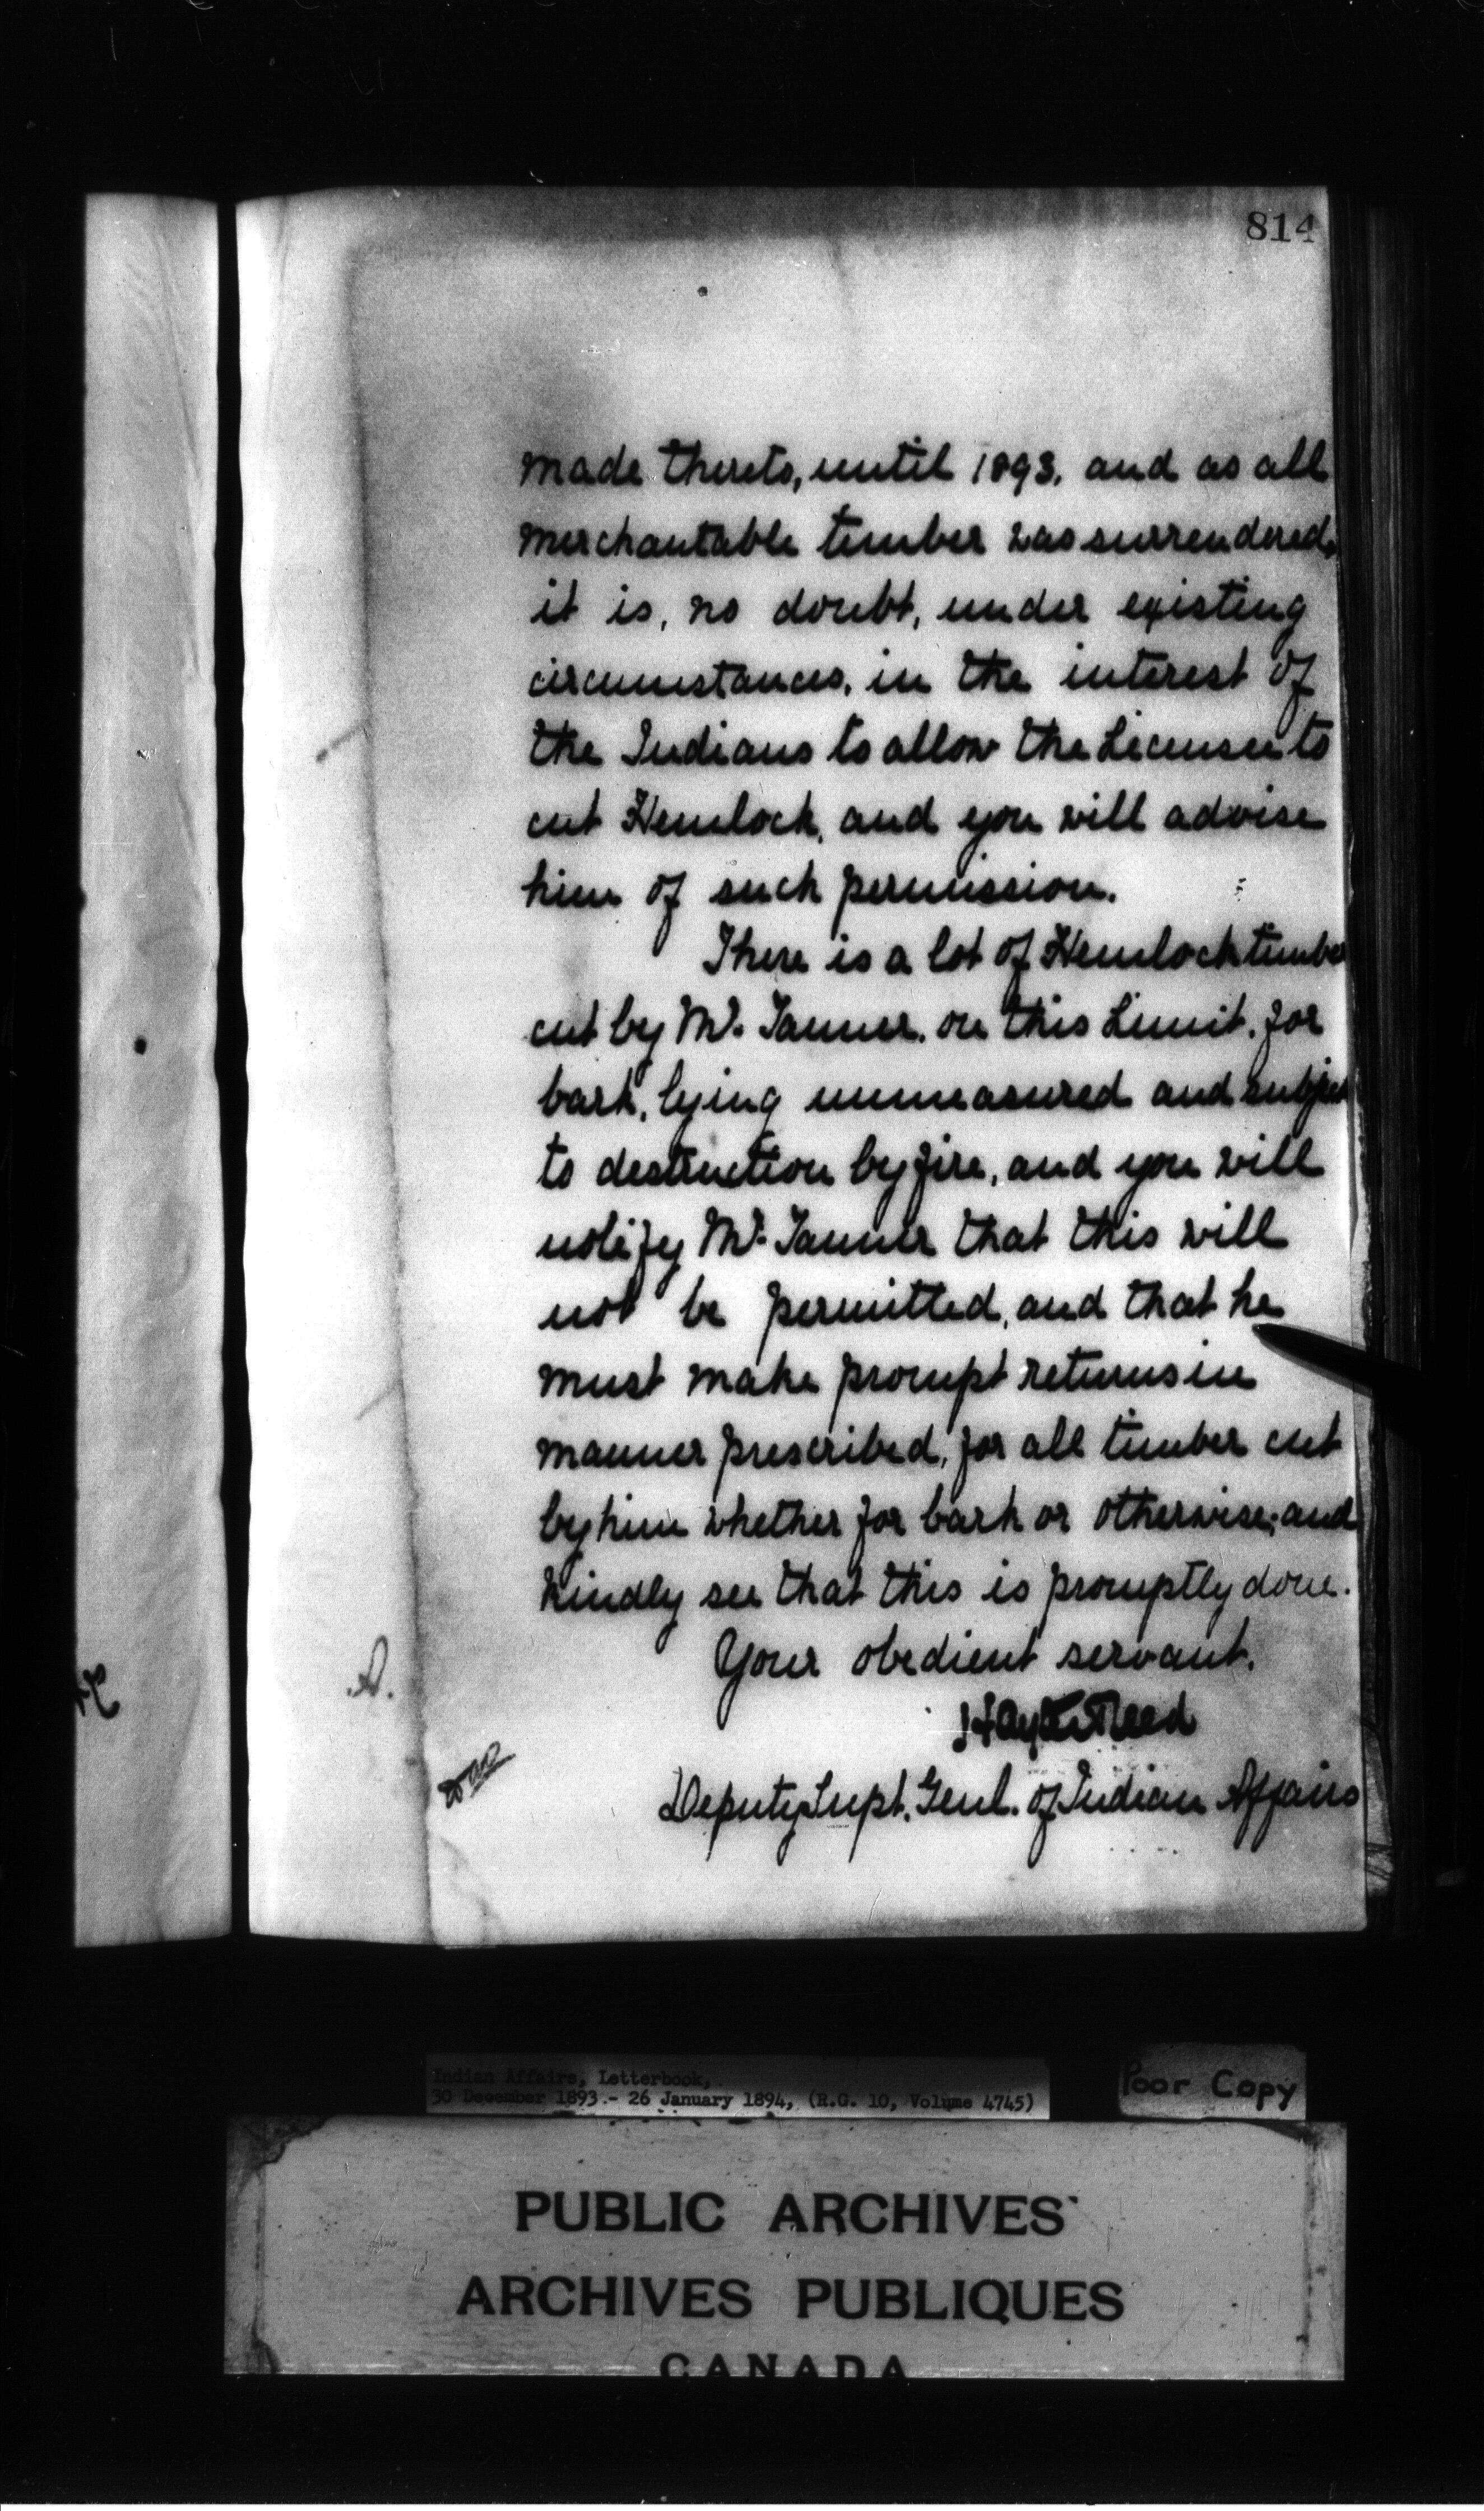 814
made thereto, until 1893, and as all
merchantable timber was surrendered,
it is, no doubt, under existing
circumstances, in the interest of
the Indians to allow the Licensee to
cut Hemlock, and you will advise
him of such permission.
There is a lot of Hemlock timber
cut by Mr. Tanner, on this Limit, for
bark, lying unmeasured and subject
to destruction by fire, and you will
notify Mr. Tanner that this will
not be permitted, and that he
must make prompt returns in
manner prescribed, for all timber cut
by him whether for bark or otherwise; and
kindly see that this is promptly done.
Your obedient servant.
Hayter Reed
Deputy Supt. Genl. of Indian Affairs
Indian Affairs, Letterbook,
30 December 1893 - 26 January 1894, (R.G. 10, Volume 4745)
Poor Copy
PUBLIC ARCHIVES
ARCHIVES PUBLIQUES
CANADA